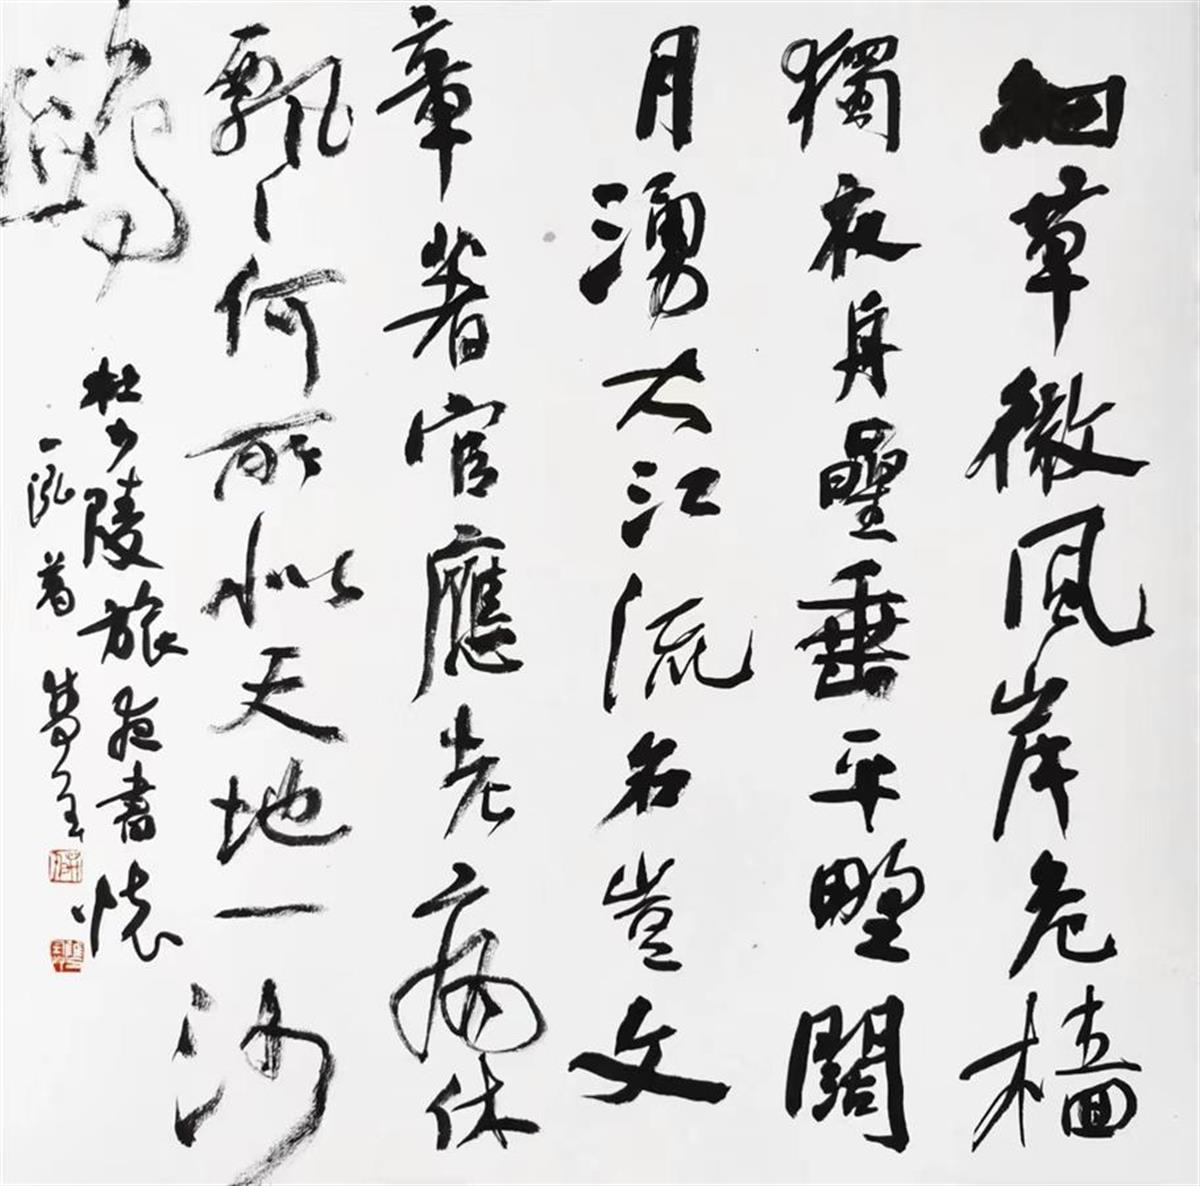 細草微風岸危檣
獨夜舟星垂平野闊
月湧大江流名豈文
章著官應老病休
飄〻何所似天地一沙
鷗
杜少陵旅夜書懷
一泓